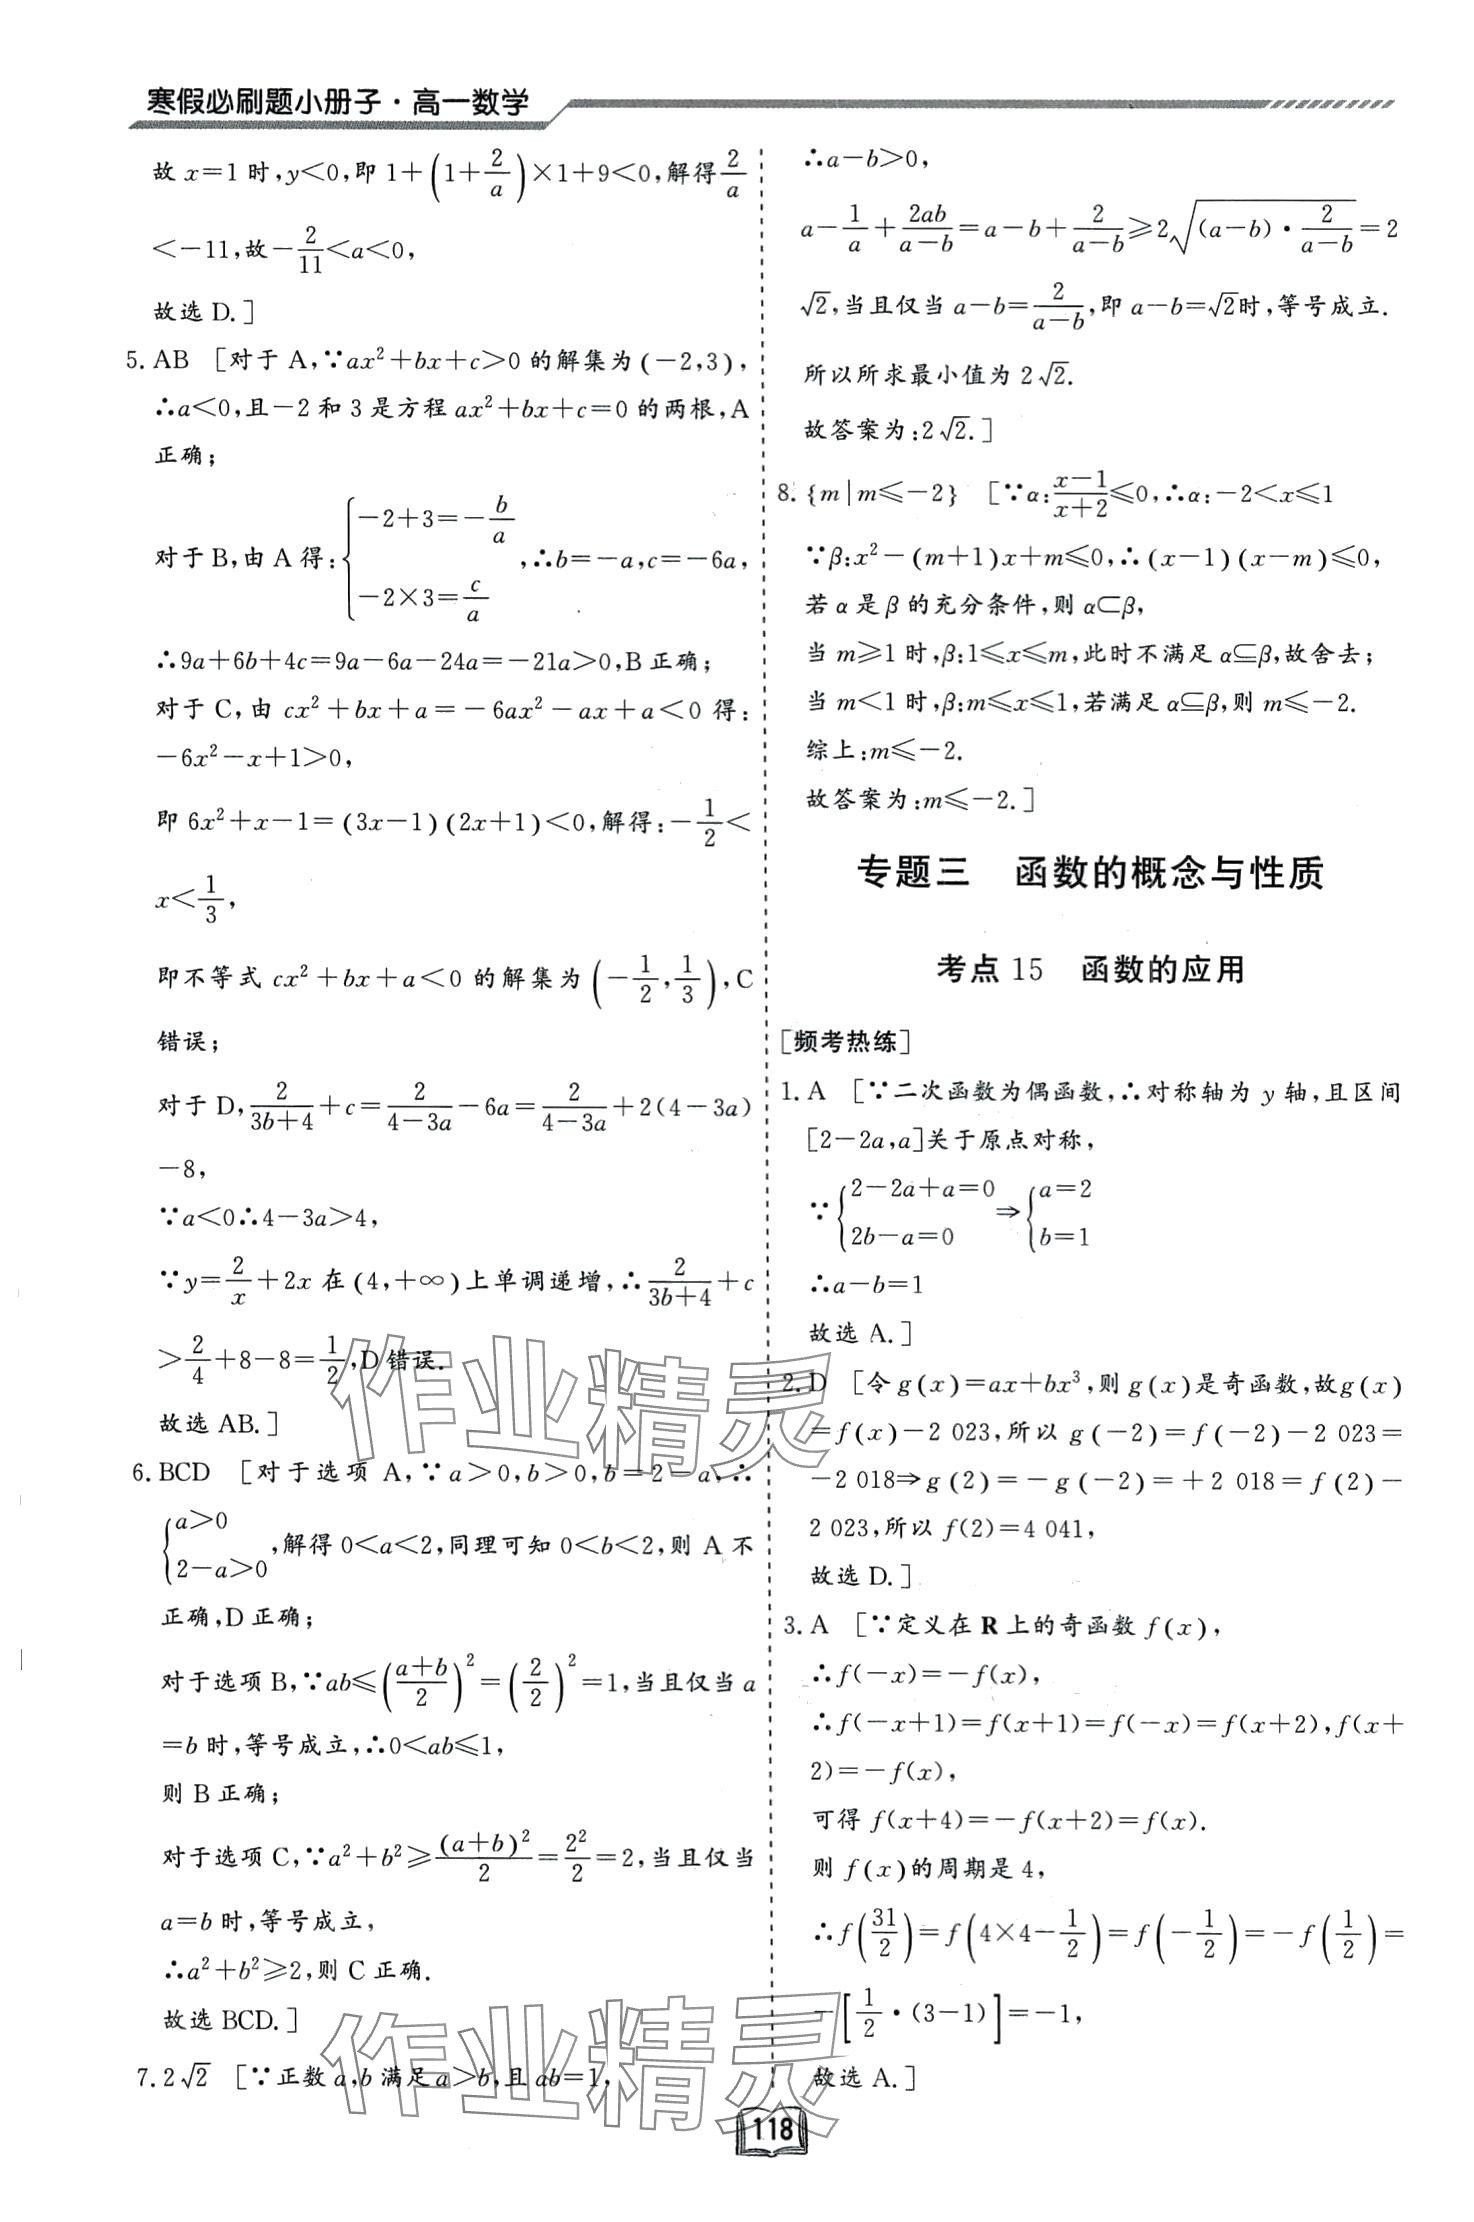 寒假必刷题小册子·高一数学
故 x=1 时,y<0,即 1+(1+2/a)×1+9<0,解得2/a
<-11,故-2/11<a<0,
故选 D.]
5. AB [对于 A,∵ax²+bx+c>0 的解集为(-2,3),
∴a<0,且-2 和 3 是方程 ax²+bx+c=0 的两根,A
正确;
对于 B,由 A 得:{-2+3=-b/a
-2×3=c/a ,∴b=-a,c=-6a,
∴9a+6b+4c=9a-6a-24a=-21a>0,B 正确;
对于 C,由 cx²+bx+a=-6ax²-ax+a<0 得:
-6x²-x+1>0,
即 6x²+x-1=(3x-1)(2x+1)<0,解得:-1/2<
x<1/3,
即不等式 cx²+bx+a<0 的解集为(-1/2,1/3),C
错误;
对于 D,2/(3b+4)+c=2/(4-3a)-6a=2/(4-3a)+2(4-3a)
-8,
∵a<0∴4-3a>4,
∵y=2/x+2x 在(4,+∞)上单调递增,∴2/(3b+4)+c
>2/4+8-8=1/2,D 错误.
故选 AB.]
6. BCD [对于选项 A,∵a>0,b>0,b=2-a,∴
{a>0
2-a>0 ,解得 0<a<2,同理可知 0<b<2,则 A 不
正确,D 正确;
对于选项 B,∵ab≤((a+b)/2)²=(2/2)²=1,当且仅当 a
=b 时,等号成立,∴0<ab≤1,
则 B 正确;
对于选项 C,∵a²+b²≥(a+b)²/2=2²/2=2,当且仅当
a=b 时,等号成立,
∴a²+b²≥2,则 C 正确.
故选 BCD.]
7. 2√2 [∵正数 a,b 满足 a>b,且 ab=1,
∴a-b>0,
a-1/a+2ab/(a-b)=a-b+2/(a-b)≥2√((a-b)·2/(a-b))=2
√2,当且仅当 a-b=2/(a-b),即 a-b=√2时,等号成立.
所以所求最小值为 2√2.
故答案为:2√2.]
8. {m|m≤-2} [∵α:(x-1)/(x+2)≤0,∴α:-2<x≤1
∵β:x²-(m+1)x+m≤0,∴(x-1)(x-m)≤0,
若 α 是 β 的充分条件,则 α⊂β,
当 m≥1 时,β:1≤x≤m,此时不满足 α⊆β,故舍去;
当 m<1 时,β:m≤x≤1,若满足 α⊆β,则 m≤-2.
综上:m≤-2.
故答案为:m≤-2.]
专题三 函数的概念与性质
考点 15 函数的应用
[频考热练]
1. A [∵二次函数为偶函数,∴对称轴为 y 轴,且区间
[2-2a,a]关于原点对称,
∵{2-2a+a=0 ⇒{a=2
2b-a=0 b=1
∴a-b=1
故选 A.]
2. D [令 g(x)=ax+bx³,则 g(x)是奇函数,故g(x)
=f(x)-2 023,所以 g(-2)=f(-2)-2 023=
-2 018⇒g(2)=-g(-2)=+2 018=f(2)-
2 023,所以 f(2)=4 041,
故选 D.]
3. A [∵定义在 R 上的奇函数 f(x),
∴f(-x)=-f(x),
∴f(-x+1)=f(x+1)=f(-x)=f(x+2),f(x+
2)=-f(x),
可得 f(x+4)=-f(x+2)=f(x).
则 f(x)的周期是 4,
∴f(31/2)=f(4×4-1/2)=f(-1/2)=-f(1/2)=
-[1/2·(3-1)]=-1,
故选 A.]
作业精灵
作业精灵
118